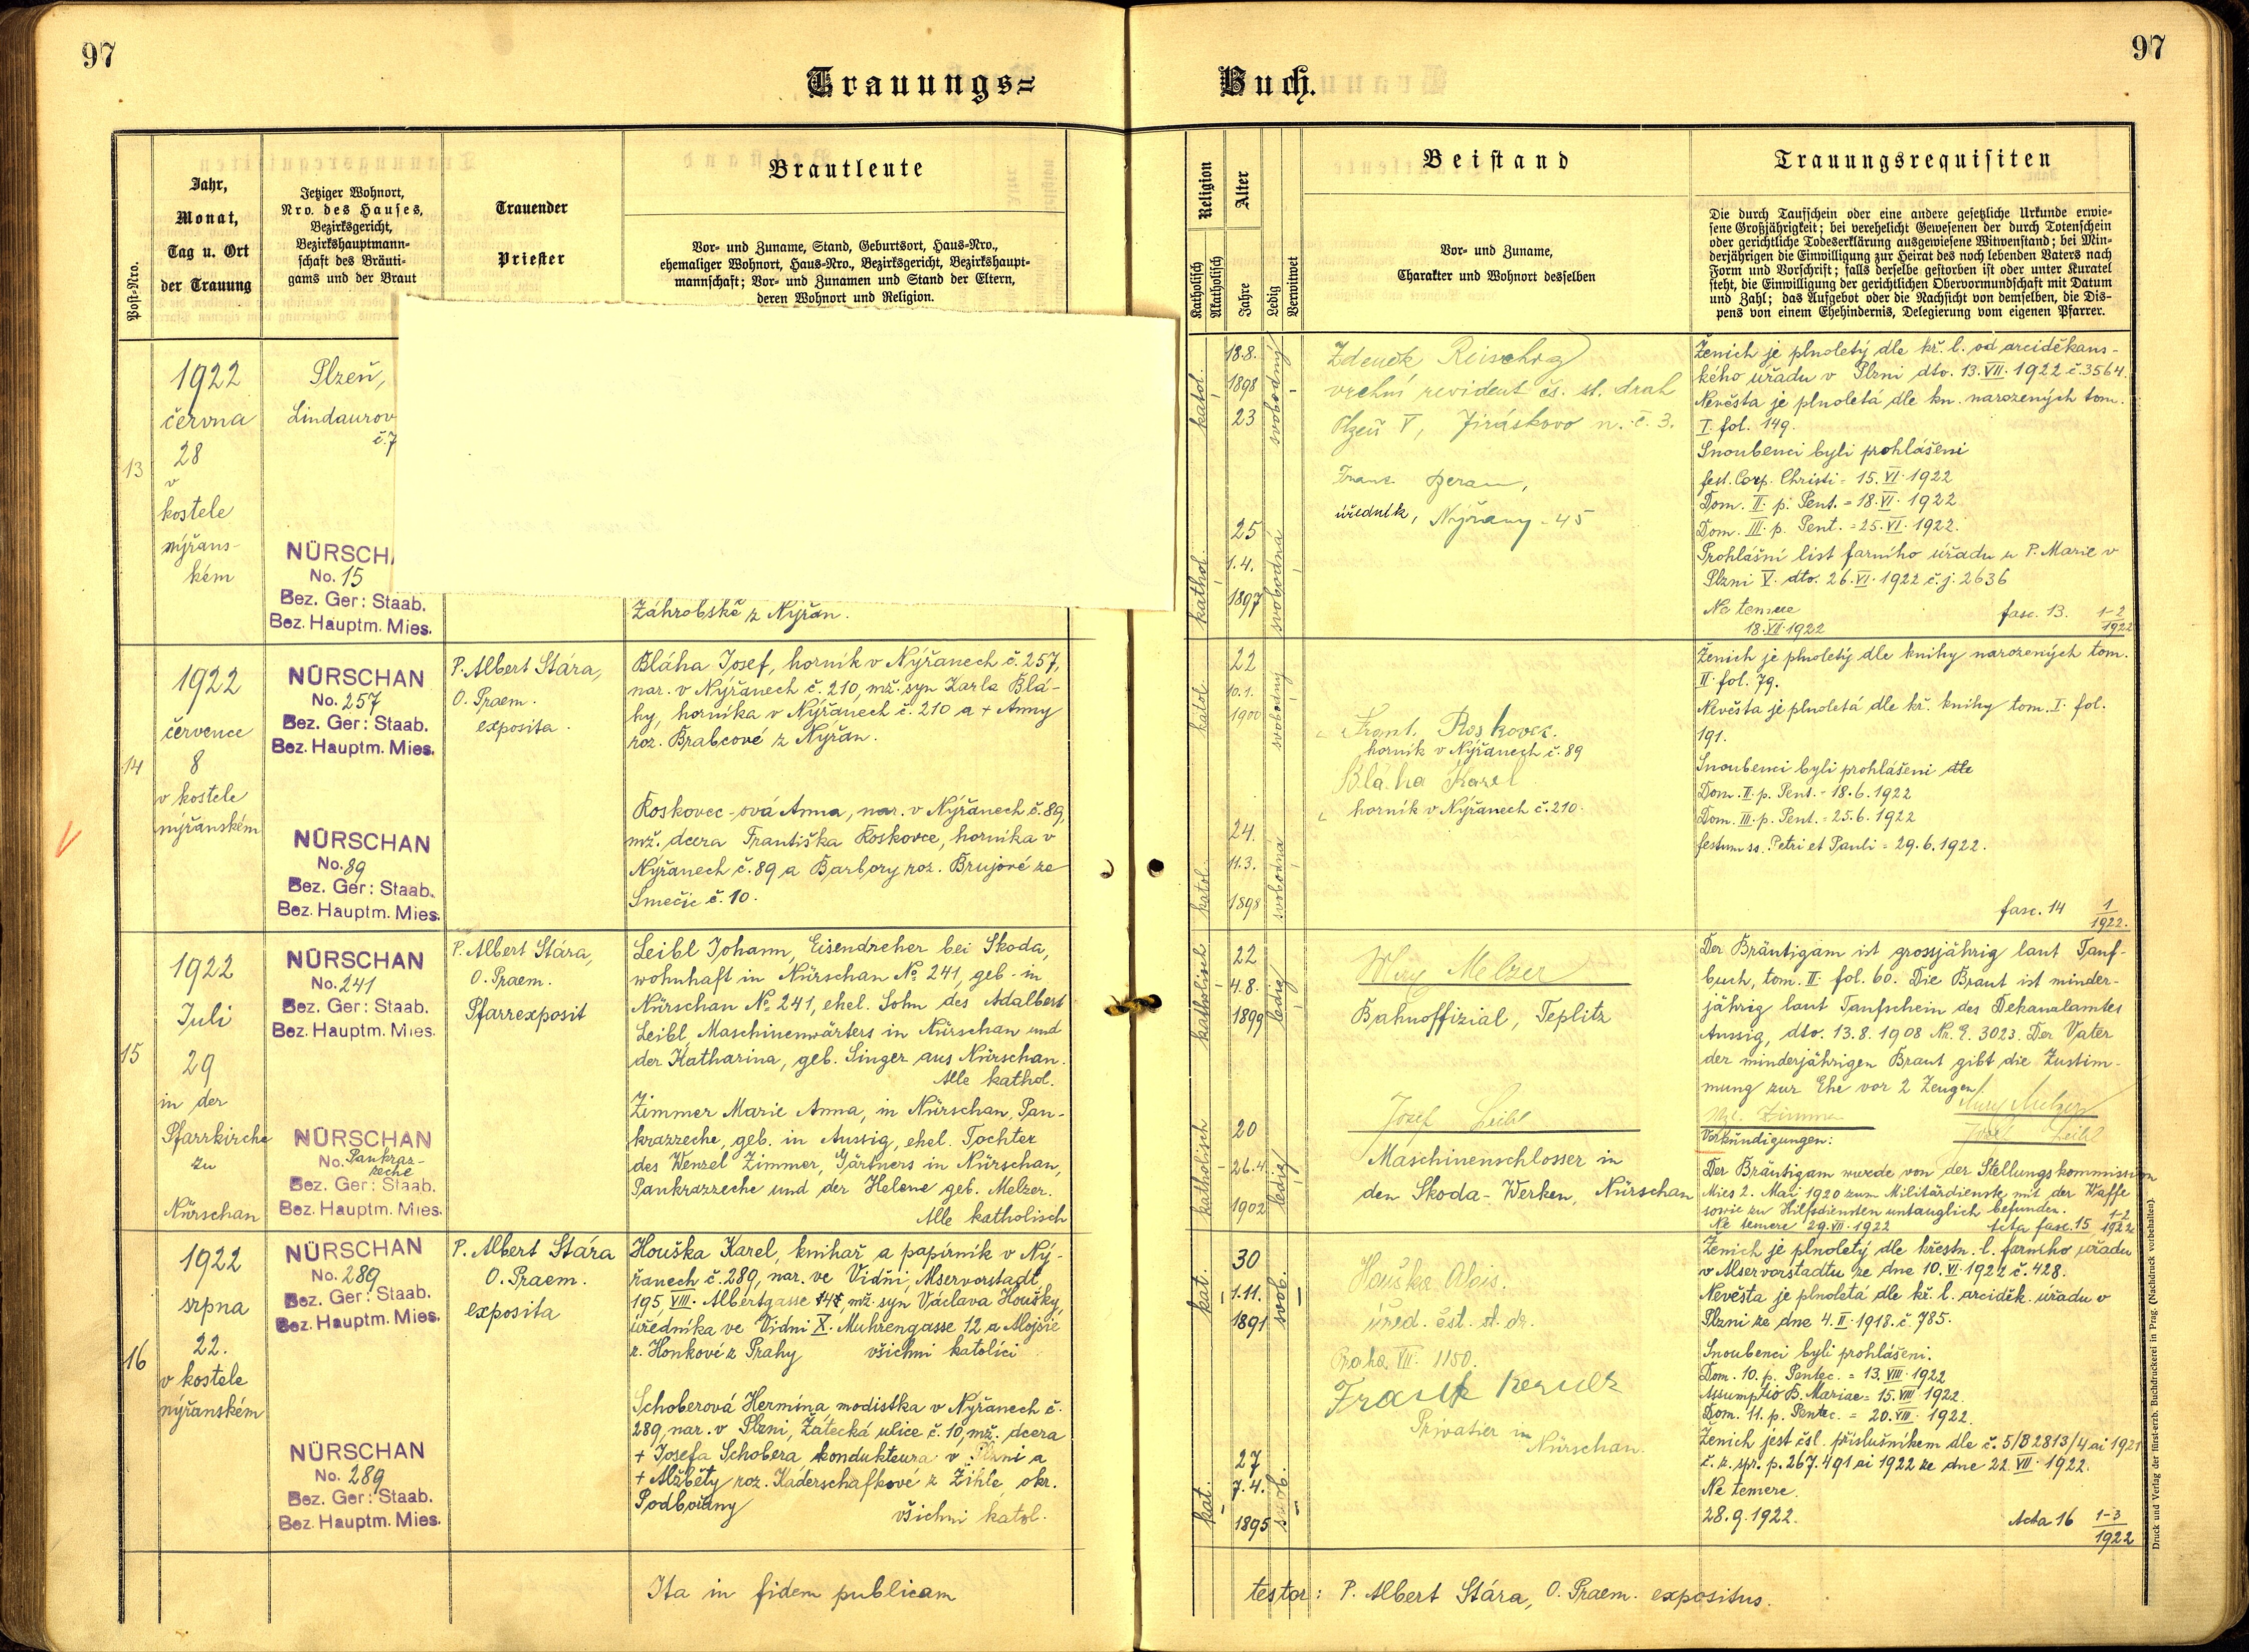 97
97
Trauungs=
Buch.
Post-Nro.
Jahr,
Monat,
Tag u. Ort
der Trauung
Jetziger Wohnort,
Nro. des Hauses,
Bezirksgericht,
Bezirkshauptmann-
schaft des Bräuti-
gams und der Braut
Trauender
Priester
Brautleute
Vor- und Zuname, Stand, Geburtsort, Haus-Nro.,
ehemaliger Wohnort, Haus-Nro., Bezirksgericht, Bezirkshaupt-
mannschaft; Vor- und Zunamen und Stand der Eltern,
deren Wohnort und Religion.
Religion
Katholisch
Akatholisch
Alter
Jahre
Ledig
Verwitwet
Beistand
Vor- und Zuname,
Charakter und Wohnort desselben
Trauungsrequisiten
Die durch Taufschein oder eine andere gesetzliche Urkunde erwie-
sene Großjährigkeit; bei verehelicht Gewesenen der durch Totenschein
oder gerichtliche Todeserklärung ausgewiesene Witwenstand; bei Min-
derjährigen die Einwilligung zur Heirat des noch lebenden Vaters nach
Form und Vorschrift; falls derselbe gestorben ist oder unter Kuratel
steht, die Einwilligung der gerichtlichen Obervormundschaft mit Datum
und Zahl; das Aufgebot oder die Nachsicht von demselben, die Dis-
pens von einem Ehehindernis, Delegierung vom eigenen Pfarrer.
13
1922
června
28
v
kostele
nýřans-
kém
Plzeň,
Lindaurov
č.7
NÜRSCH
No. 15
Bez. Ger: Staab.
Bez. Hauptm. Mies.
Záhrobské z Nýřan.
katol.
18.8.
1898
23
svobodný
kathol.
25
1.4.
1897
svobodná
Zdeněk
vrchní revident čs. st. drah
Plzeň V, Jiráskovo n. č. 3.
Franz Beran,
úředník, Nýřany 45
Ženich je plnoletý dle kř. l. od arciděkans-
kého úřadu v Plzni dto. 13.VII.1922 č.3564.
Nevěsta je plnoletá dle kn. narozených tom.
I. fol. 149.
Snoubenci byli prohlášeni
fest. Corp. Christi = 15.VI.1922
Dom. II. p. Pent. = 18.VI.1922
Dom. III. p. Pent. = 25.VI.1922.
Prohlášní list farního úřadu u P. Marie v
Plzni V. dto. 26.VI.1922 č.j. 2636
Ne temere
18.VII.1922
fasc. 13. 1-2
1922
14
1922
července
8
v kostele
nýřanském
NÜRSCHAN
No. 257
Bez. Ger: Staab.
Bez. Hauptm. Mies.
NÜRSCHAN
No. 89
Bez. Ger: Staab.
Bez. Hauptm. Mies.
P. Albert Stára,
O. Praem.
exposita.
Bláha Josef, horník v Nýřanech č. 257,
nar. v Nýřanech č. 210, mž. syn Karla Blá-
hy, horníka v Nýřanech č. 210 a + Anny
roz. Brabcové z Nýřan.
Roskovec-ová Anna, nar. v Nýřanech č. 89,
mž. dcera Františka Roskovce, horníka v
Nýřanech č. 89 a Barbory roz. Brujové ze
Smečic č. 10.
katol.
22
10.1.
1900
svobodný
katol.
24.
11.3.
1898
svobodná
Frant. Roskovec.
horník v Nýřanech č. 89
Bláha Karel
horník v Nýřanech č. 210.
Ženich je plnoletý dle knihy narozených tom.
II. fol. 79.
Nevěsta je plnoletá dle kř. knihy tom. I. fol.
191.
Snoubenci byli prohlášeni dle
Dom. II. p. Pent. = 18.6.1922
Dom. III. p. Pent. = 25.6.1922
festum ss. Petri et Pauli = 29.6.1922.
fasc. 14 1
1922.
15
1922
Juli
29
in der
Pfarrkirche
zu
Nürschan
NÜRSCHAN
No. 241
Bez. Ger: Staab.
Bez. Hauptm. Mies.
NÜRSCHAN
No. Pankraz-
zeche
Bez. Ger: Staab.
Bez. Hauptm. Mies.
P. Albert Stára,
O. Praem.
Pfarrexposit
Leibl Johann, Eisendreher bei Skoda,
wohnhaft in Nürschan No 241, geb. in
Nürschan No 241, ehel. Sohn des Adalbert
Leibl, Maschinenwärters in Nürschan und
der Katharina, geb. Singer aus Nürschan.
Alle kathol.
Zimmer Marie Anna, in Nürschan, Pan-
krazzeche, geb. in Aussig, ehel. Tochter
des Wenzel Zimmer, Gärtners in Nürschan,
Pankrazzeche und der Helene geb. Melzer.
Alle katholisch
katholisch
22
4.8.
1899
ledig
katholisch
20
26.4.
1902
ledig
Melzer
Bahnoffizial, Teplitz
Josef Leibl
Maschinenschlosser in
den Skoda-Werken, Nürschan
Der Bräutigam ist grossjährig laut Tauf-
buch, tom. II. fol. 60. Die Braut ist minder-
jährig laut Taufschein des Dekanalamtes
Aussig, dto. 13.8.1908 Nr. E. 3023. Der Vater
der minderjährigen Braut gibt die Zustim-
mung zur Ehe vor 2 Zeugen!
Melzer
Zimmer
Josef Leibl
Verkündigungen:
Der Bräutigam wurde von der Stellungskommission
Mies 2. Mai 1920 zum Militärdienste mit der Waffe
sowie zu Hilfsdiensten untauglich befunden.
Ne temere 29.VII.1922 fasc. 15 1-2
1922
16
1922
srpna
22.
v kostele
nýřanském
NÜRSCHAN
No. 289
Bez. Ger: Staab.
Bez. Hauptm. Mies.
NÜRSCHAN
No. 289
Bez. Ger: Staab.
Bez. Hauptm. Mies.
P. Albert Stára
O. Praem.
exposita
Houška Karel, knihař a papírník v Ný-
řanech č. 289, nar. ve Vídni, Alservorstadt,
195, VIII. Albertgasse mž. syn Václava Houšky,
úředníka ve Vídni X. Muhrengasse 12 a Alojsie
r. Honkové z Prahy všichni katolíci
Schoberová Hermína modistka v Nýřanech č.
289, nar. v Plzni, Žatecká ulice č. 10, mž. dcera
+ Josefa Schobera kondukteura v Plzni a
+ Alžběty roz. Kaderschafkové z Žihle okr.
Podbořany
všichni katol.
kat.
30
1.11.
1891
svob.
kat.
27
7.4.
1895
svob.
Houška Alois.
úřed. čsl. st. dr.
Praha VII. 1150.
Privatier in
Nürschan.
Ženich je plnoletý dle křestn. l. farního úřadu
v Alservorstadtu ze dne 10.VI.1922 č. 428.
Nevěsta je plnoletá dle kř. l. arciděk. úřadu v
Plzni ze dne 4.II.1918. č. 785.
Snoubenci byli prohlášeni.
Dom. 10. p. Pentec. = 13.VIII.1922
Assumptio B. Mariae = 15.VIII.1922.
Dom. 11. p. Pentec. = 20.VIII.1922.
Ženich jest čsl. příslušníkem dle č. 5/B 2813/4 ai 1921
č. z. spr. p. 267.491 ai 1922 ze dne 22.VIII.1922.
Ne temere.
28.9.1922.
Acta 16 1-3
1922
Ita in fidem publicam
testor: P. Albert Stára, O. Praem. expositus.
Druck und Verlag der fürst-erzb. Buchdruckerei in Prag. (Nachdruck vorbehalten).